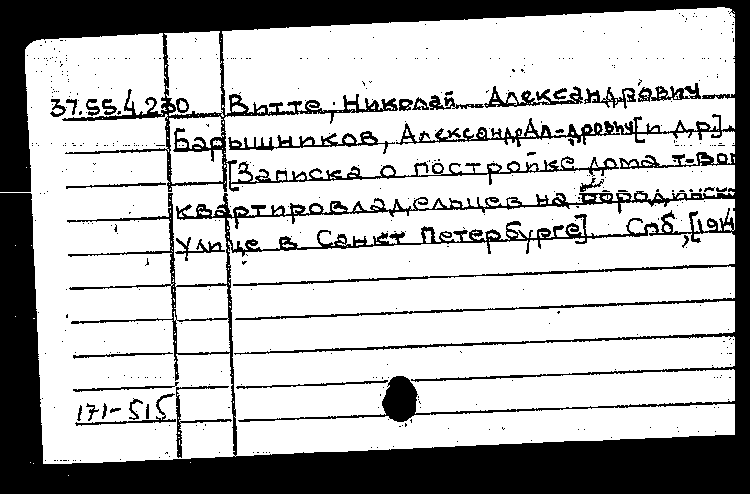 37.55.4.230. Витте, Николай Александрович
Барышников, Александр Ал-дрович [и др].
[Записка о постройке дома т-вом
квартировладельцев на Бородинско
улице в Санкт Петербурге]. Спб, [1914
171-515